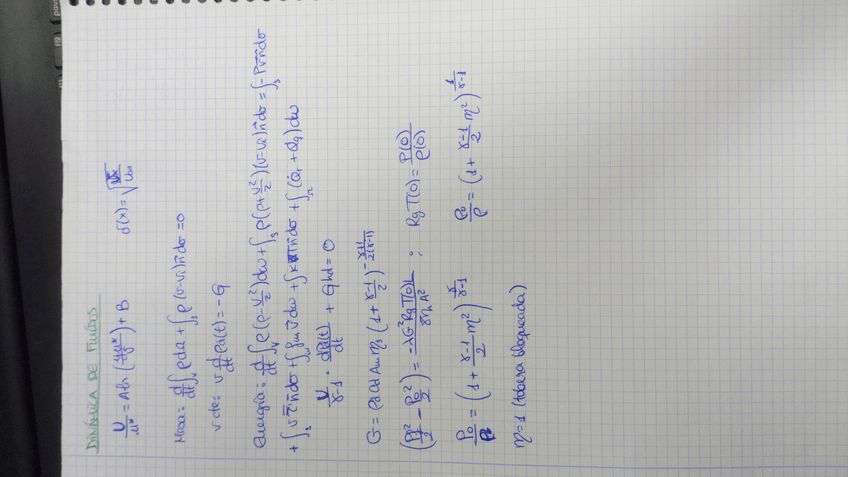 DINÁMICA DE FLUIDOS
U/u* = A ln (yu*/ν) + B δ(x) = √(νx/U∞)
Masa: d/dt ∫ᵥ ρdΩ + ∫ₛ ρ(v-vᵢ)n̄dσ = 0
v cte: v d/dt ρd(t) = -G
Energía: d/dt ∫ᵥ ρ(e-v²/2)dω + ∫ₛ ρ(e+v²/2)(v-vc)n̄dσ = ∫ₛ -Pv̄n̄dσ
+ ∫ₛ v τ̄ n̄dσ + ∫ ρfm v̄dω + ∫ κ∇Tn̄dσ + ∫Ω (Qr + Qq)dω
V/γ-1 · dPd(t)/dt + Ghd = 0
G = ρd ad Am η₁ (1 + γ-1/2)^(-γ+1/2(γ-1))
(PL²/2 - P0²/2) = -λG²RgT(0)L/γηA² ; RgT(0) = P(0)/ρ(0)
P0/P = (1 + γ-1/2 M²)^(γ/γ-1) ρ0/ρ = (1 + γ-1/2 M²)^(1/γ-1)
M=1 (tobera bloqueada)